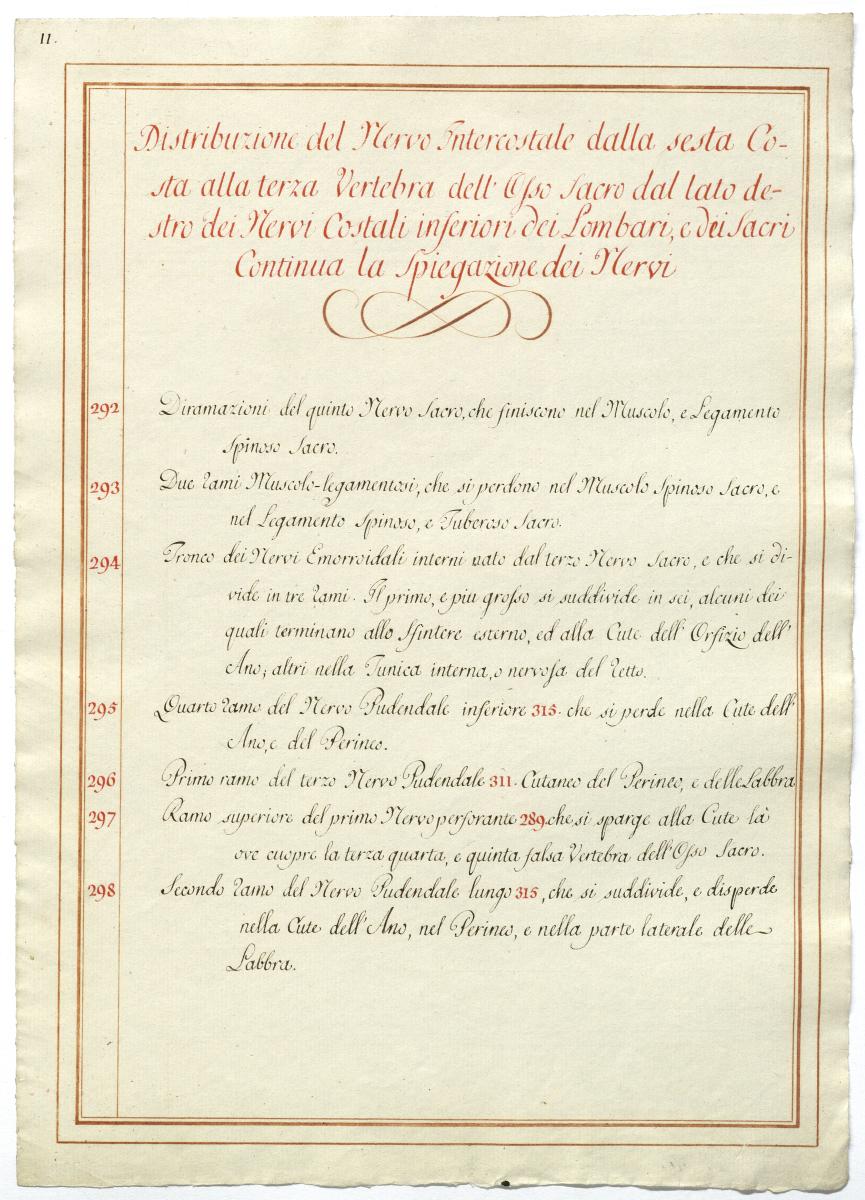 11.
Distribuzione del Nervo Intercostale dalla sesta Co-
sta alla terza Vertebra dell' Osso Sacro dal lato de-
stro dei Nervi Costali inferiori dei Lombari, e dei Sacri
Continua la Spiegazione dei Nervi
292 Diramazioni del quinto Nervo Sacro, che finiscono nel Muscolo, e Legamento
Spinoso Sacro.
293 Due rami Muscolo-legamentosi, che si perdono nel Muscolo Spinoso Sacro, e
nel Legamento Spinoso, e Tuberoso Sacro.
294 Tronco dei Nervi Emorroidali interni nato dal terzo Nervo Sacro, e che si di-
vide in tre rami. Il primo, e piu grosso si suddivide in sei, alcuni dei
quali terminano allo Sfintere esterno, ed alla Cute dell' Orifizio dell'
Ano; altri nella Tunica interna, o nervosa del retto.
295 Quarto ramo del Nervo Pudendale inferiore 315. che si perde nella Cute dell'
Ano, e del Perineo.
296 Primo ramo del terzo Nervo Pudendale 311. Cutaneo del Perineo, e delle Labbra
297 Ramo superiore del primo Nervo perforante 289. che si sparge alla Cute là
ove cuopre la terza quarta, e quinta falsa Vertebra dell' Osso Sacro.
298 Secondo ramo del Nervo Pudendale lungo 315, che si suddivide, e disperde
nella Cute dell' Ano, nel Perineo, e nella parte laterale delle
Labbra.